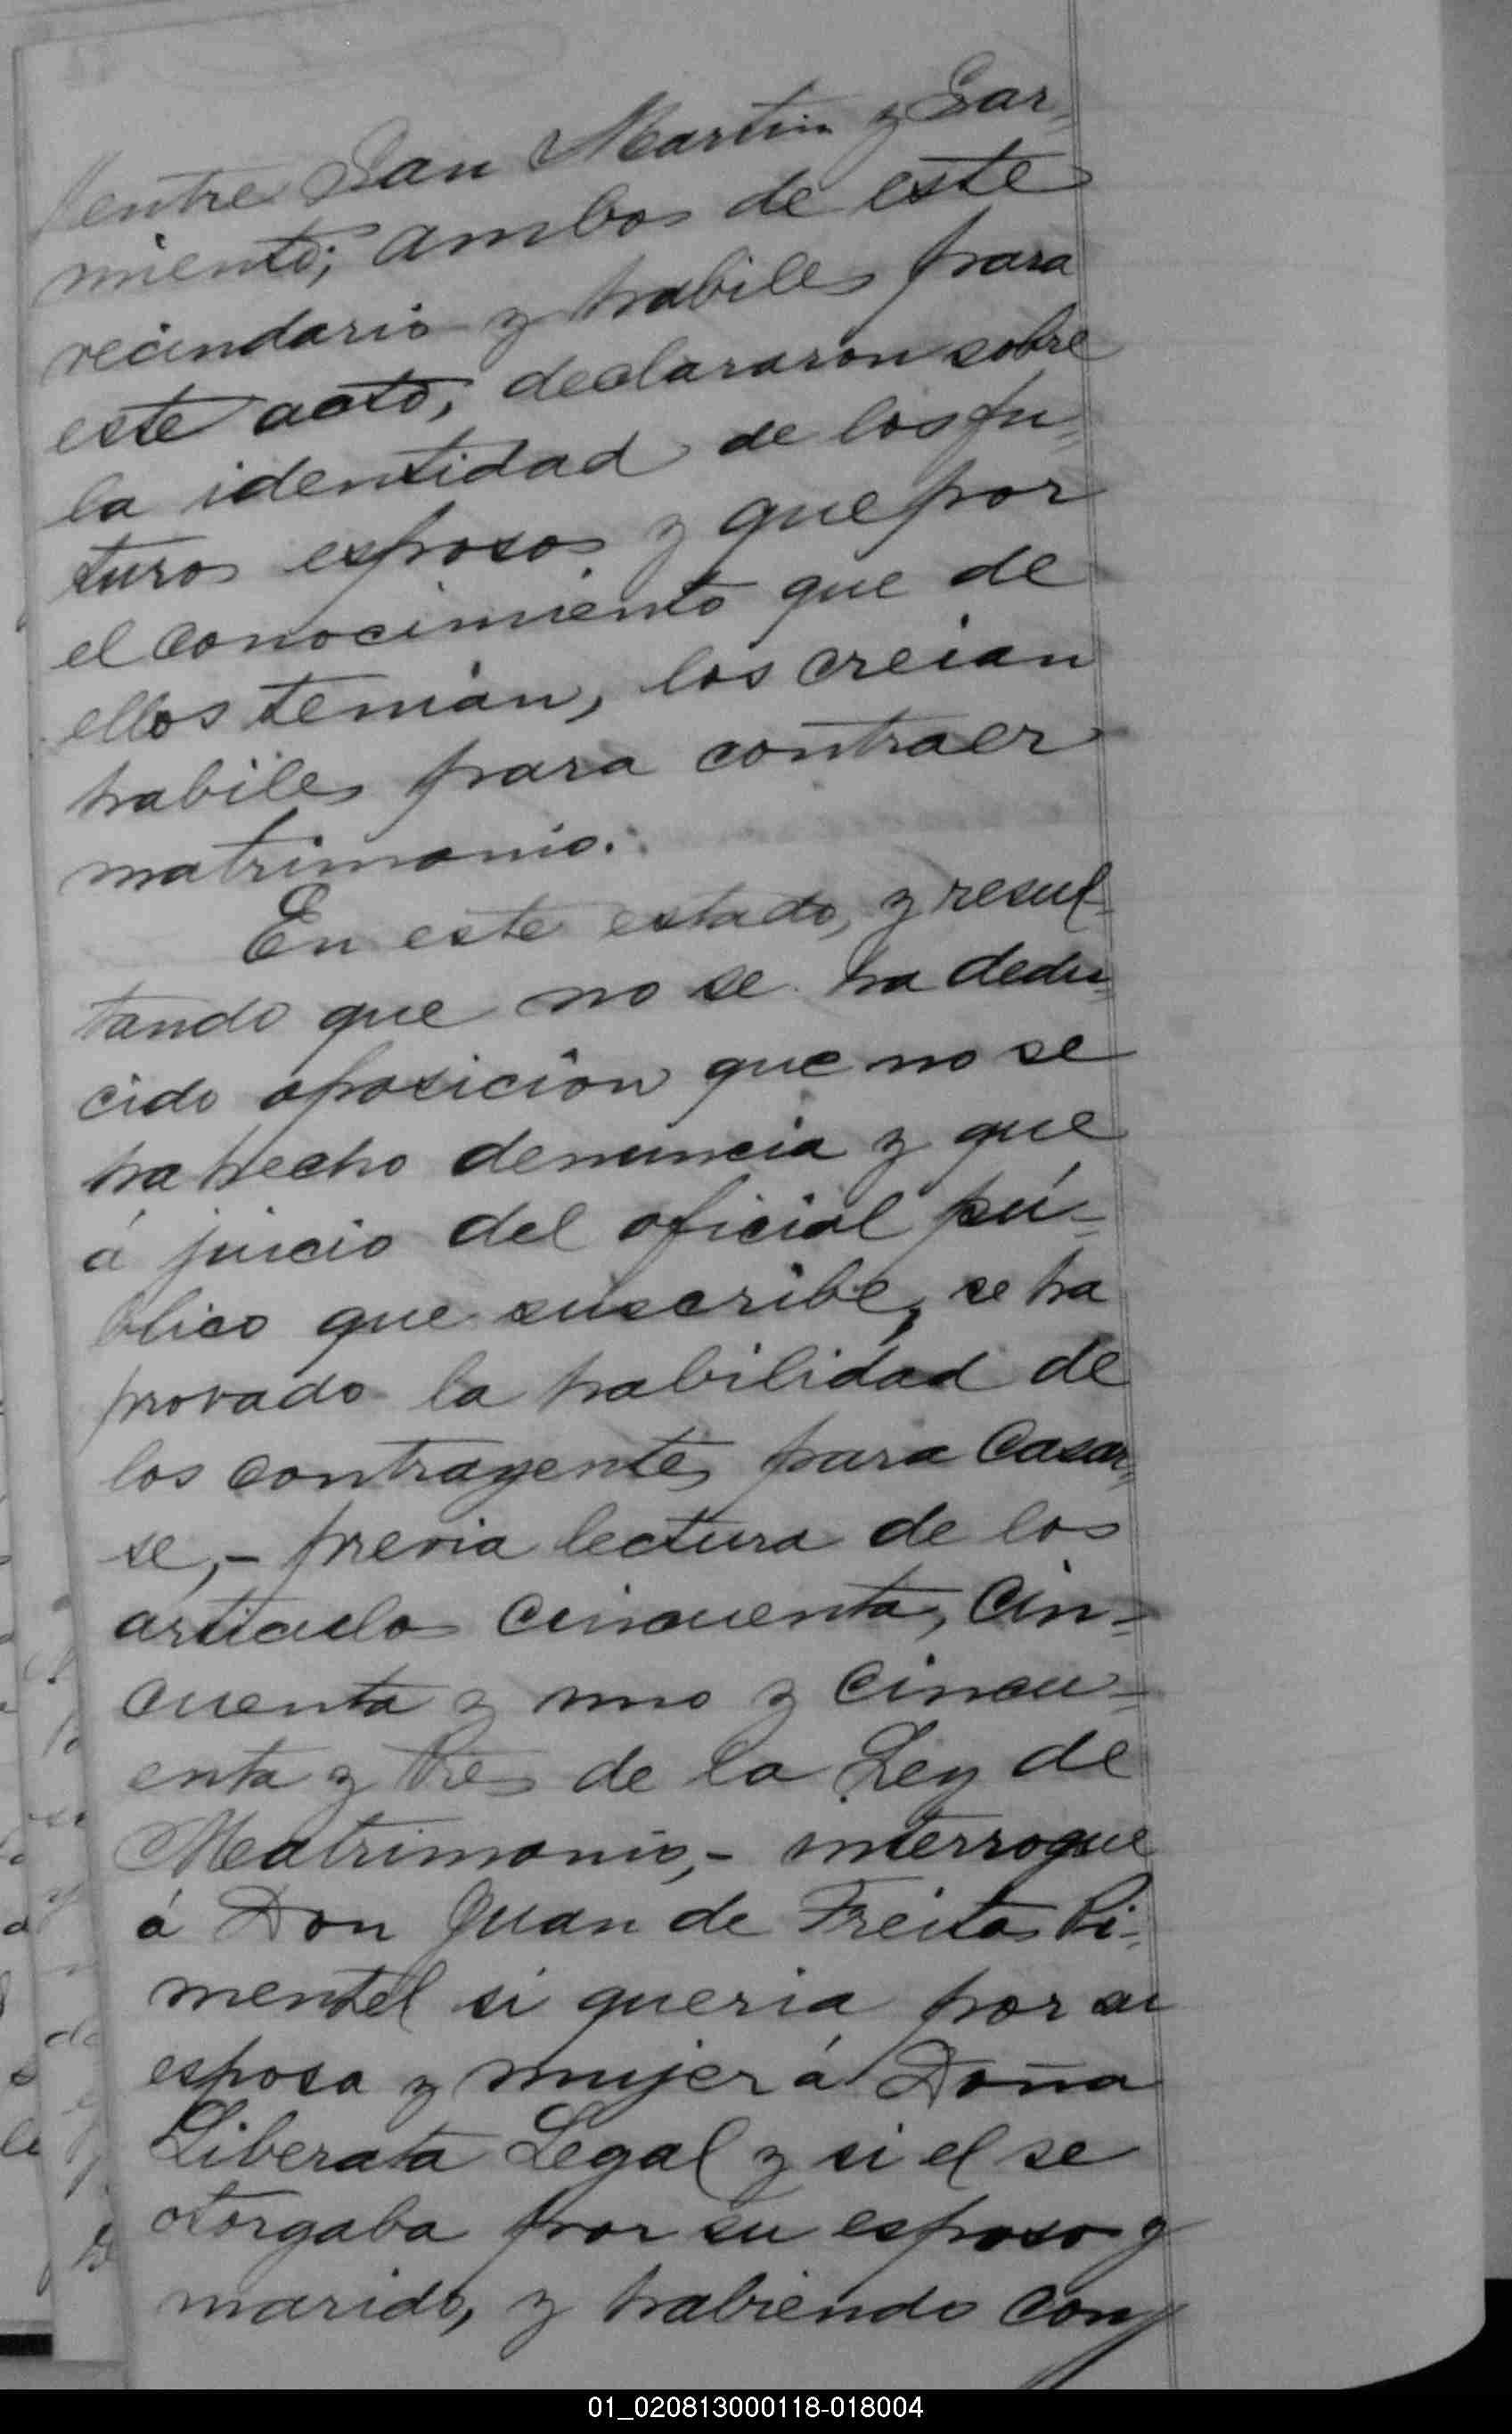 entre San Martin y Sar-
miento; ambos de este
vecindario y habiles para
este acto, declararon sobre
la identidad de los fu-
turos esposos y que por
el conocimiento que de
ellos tenian, los creian
habiles para contraer
matrimonio.
En este estado, y resul-
tando que no se ha dedu-
cido oposicion que no se
ha hecho denuncia y que
á juicio del oficial pú-
blico que suscribe, se ha
provado la habilidad de
los contrayentes para casar-
se,- previa lectura de los
articulos cincuenta, cin-
cuenta y uno y cincu-
enta y tres de la Ley de
Matrimonio,- interrogue
á Don Juan de Freitas Pi-
mentel si queria por su
esposa y mujer á Doña
Liberata Legal y si el se
otorgaba por su esposo y
marido, y habiendo con
01_020813000118-018004